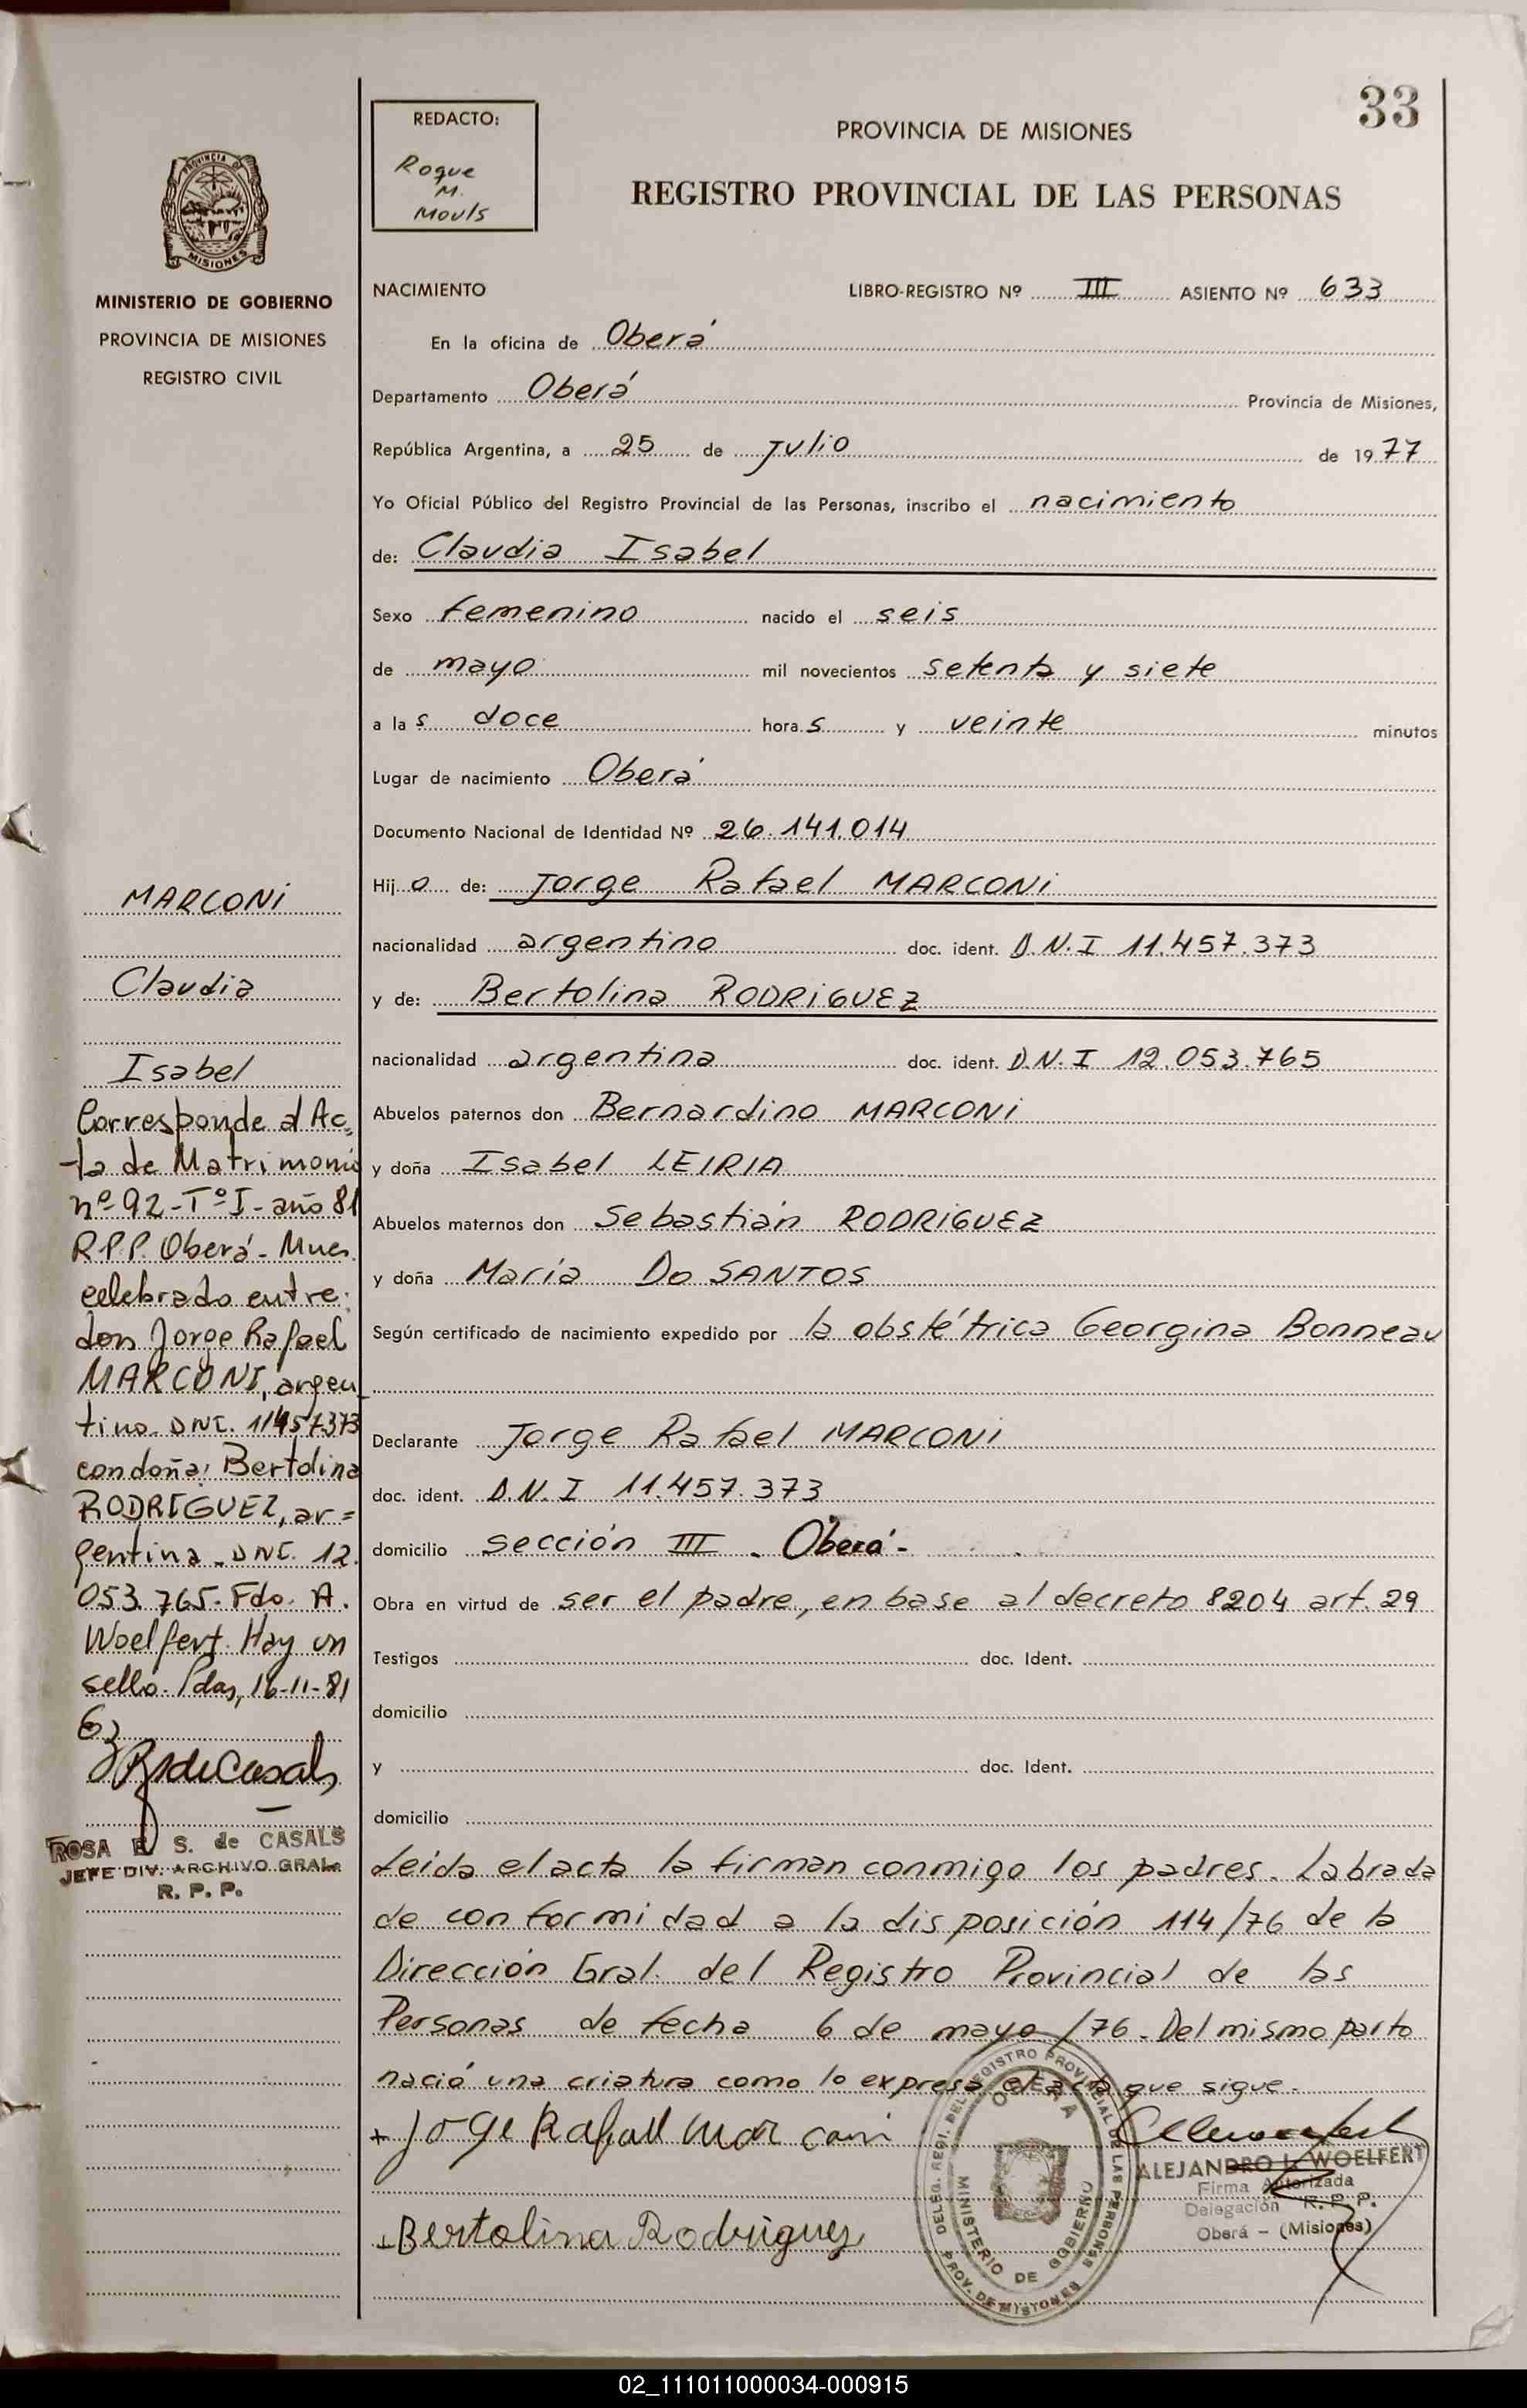 33
REDACTO:
Roque
M.
Mouls
PROVINCIA DE MISIONES
REGISTRO PROVINCIAL DE LAS PERSONAS
PROVINCIA DE
MISIONES
MINISTERIO DE GOBIERNO
PROVINCIA DE MISIONES
REGISTRO CIVIL
NACIMIENTO LIBRO-REGISTRO Nº III ASIENTO Nº 633
En la oficina de Oberá
Departamento Oberá Provincia de Misiones,
República Argentina, a 25 de Julio de 1977
Yo Oficial Público del Registro Provincial de las Personas, inscribo el nacimiento
de: Claudia Isabel
Sexo femenino nacido el seis
de mayo mil novecientos setenta y siete
a las doce horas y veinte minutos
Lugar de nacimiento Oberá
Documento Nacional de Identidad Nº 26.141.014
Hijo de: Jorge Rafael MARCONi
nacionalidad argentino doc. ident. D.N.I 11.457.373
y de: Bertolina RODRiGUEZ
nacionalidad argentina doc. ident. D.N.I 12.053.765
Abuelos paternos don Bernardino MARCONi
y doña Isabel LEIRIA
Abuelos maternos don Sebastián RODRiGUEZ
y doña María Do SANTOS
Según certificado de nacimiento expedido por la obstétrica Georgina Bonneau
Declarante Jorge Rafael MARCONi
doc. ident. D.N.I 11.457.373
domicilio sección III - Oberá-
Obra en virtud de ser el padre, en base al decreto 8204 art. 29
Testigos doc. Ident.
domicilio
y doc. Ident.
domicilio
Leida el acta la firman conmigo los padres. Labrada
de conformidad a la disposición 114/76 de la
Dirección Gral. del Registro Provincial de las
Personas de fecha 6 de mayo/76. Del mismo parto
nació una criatura como lo expresa el acta que sigue.
+ Jorge Rafael Marconi
+ Bertolina Rodriguez
DELEG. REGI. DEL REGISTRO PROVINCIAL DE LAS PERSONAS
OBERA
MINISTERIO DE GOBIERNO
PROV. DE MISIONES
ALEJANDRO L. WOELFERT
Firma Autorizada
Delegación R.P.P.
Oberá - (Misiones)
MARCONi
Claudia
Isabel
Corresponde al Ac=
ta de Matrimonio
nº 92-Tº I-año 81
R.P.P. Oberá- Mnes.
celebrado entre:
don Jorge Rafael
MARCONI, argen
tino. DNI. 11457373
con doña: Bertolina
RODRIGUEZ, ar=
gentina - DNI. 12.
053.765. Fdo. A.
Woelfert. Hay un
sello. Pdas, 16-11-81
ROSA E. S. de CASALS
JEFE DIV. ARCHIVO GRAL.
R. P. P.
02_111011000034-000915